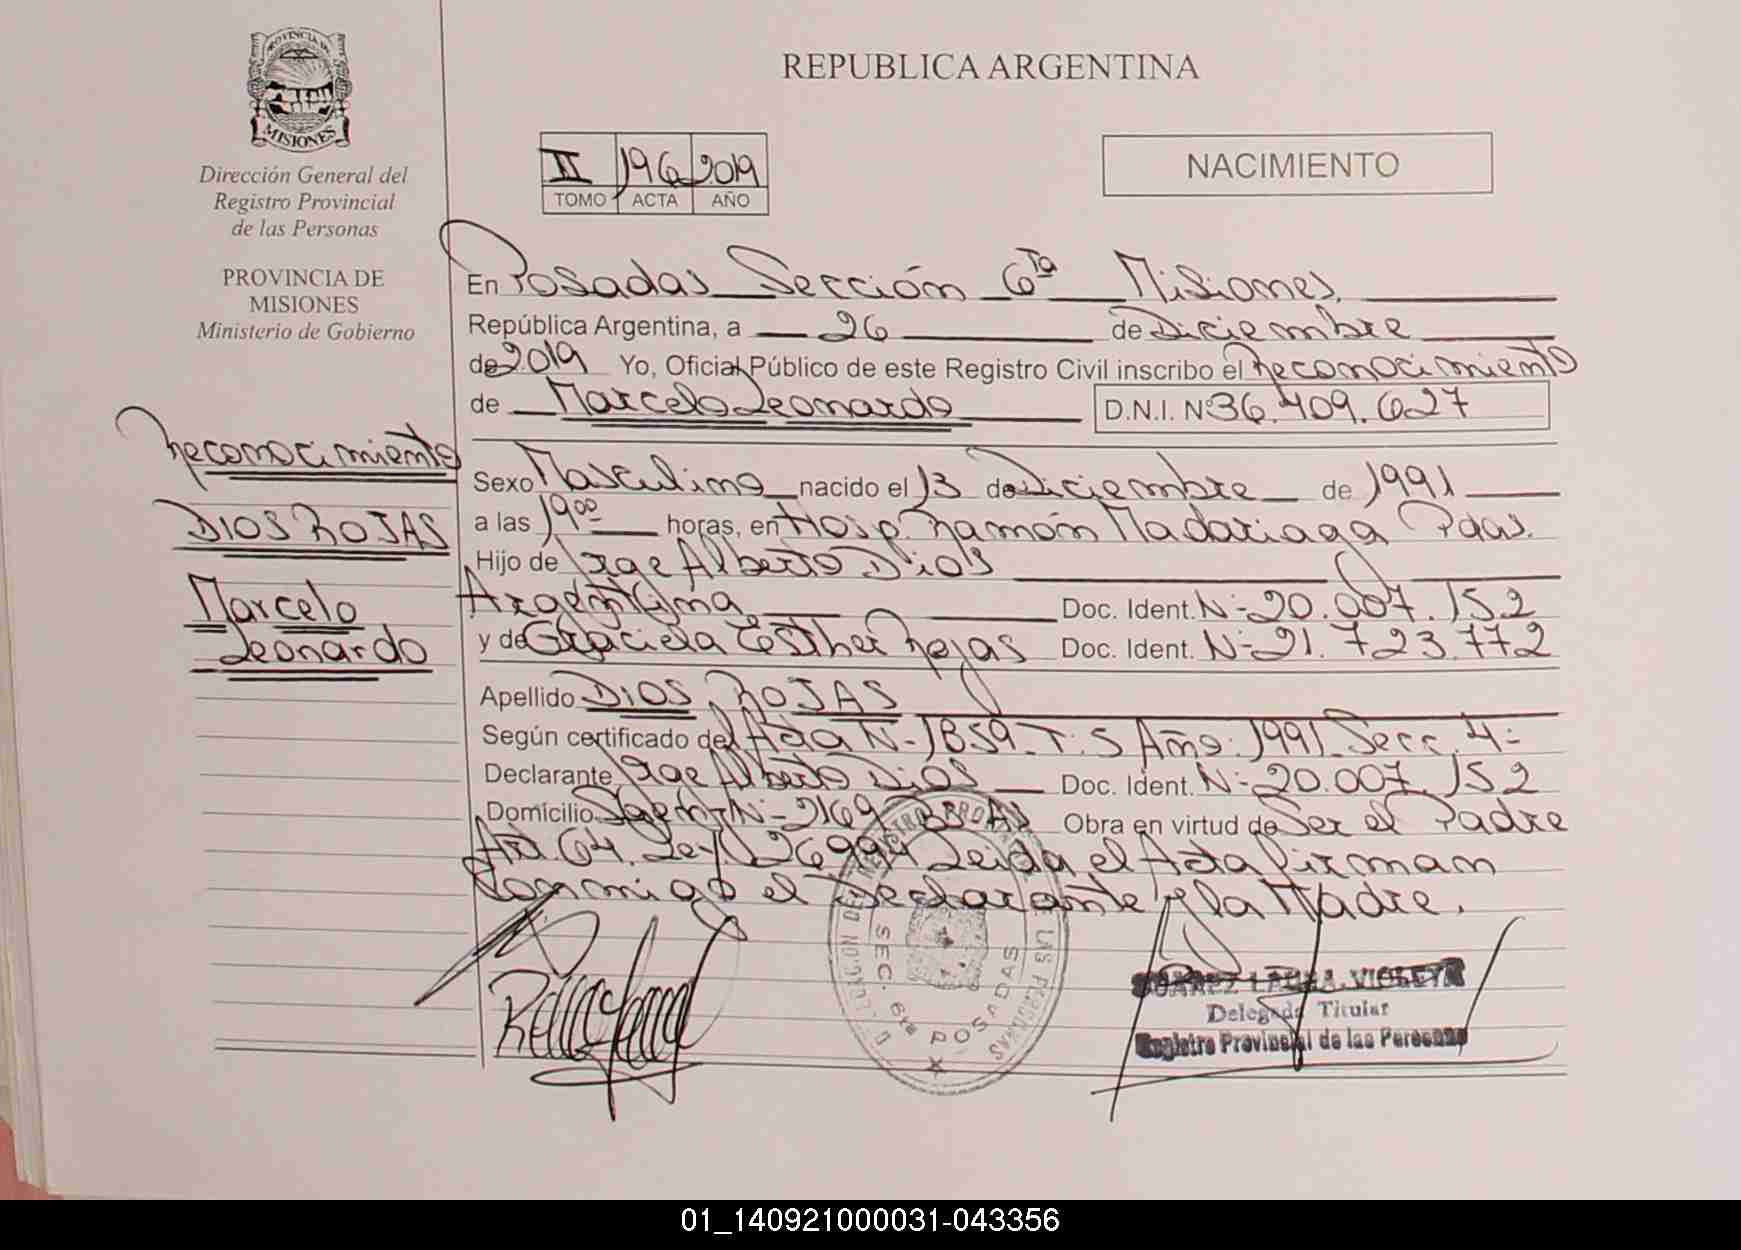 PROVINCIA DE
MISIONES
Dirección General del
Registro Provincial
de las Personas
PROVINCIA DE
MISIONES
Ministerio de Gobierno
Reconocimiento
DIOS ROJAS
Marcelo
Leonardo
REPUBLICA ARGENTINA
II 196 2019
TOMO ACTA AÑO
NACIMIENTO
En Posadas Sección 6ta Misiones.
República Argentina, a 26 de Diciembre
de 2019 Yo, Oficial Público de este Registro Civil inscribo el Reconocimiento
de Marcelo Leonardo D.N.I. Nº 36.409.627
Sexo Masculino nacido el 13 de Diciembre de 1991
a las 19 00 horas, en Hosp. Ramón Madariaga Pdas.
Hijo de Jorge Alberto Dios
Argentina Doc. Ident. Nº 20.007.152
y de Graciela Esther Rojas Doc. Ident. Nº 21.723.772
Apellido DIOS ROJAS
Según certificado del Acta Nº 1859 T: 5 Año: 1991 Secc. 4º
Declarante Jorge Alberto Dios Doc. Ident. Nº 20.007.152
Domicilio Nº 2169 Bs As Obra en virtud de Ser el Padre
Art. 64. Ley 26994 Leida el Acta firman
conmigo el Declarante y la Madre.
SEC. 6ta POSADAS
SUAREZ LAURA VIOLETA
Delegada Titular
Registro Provincial de las Personas
01_140921000031-043356